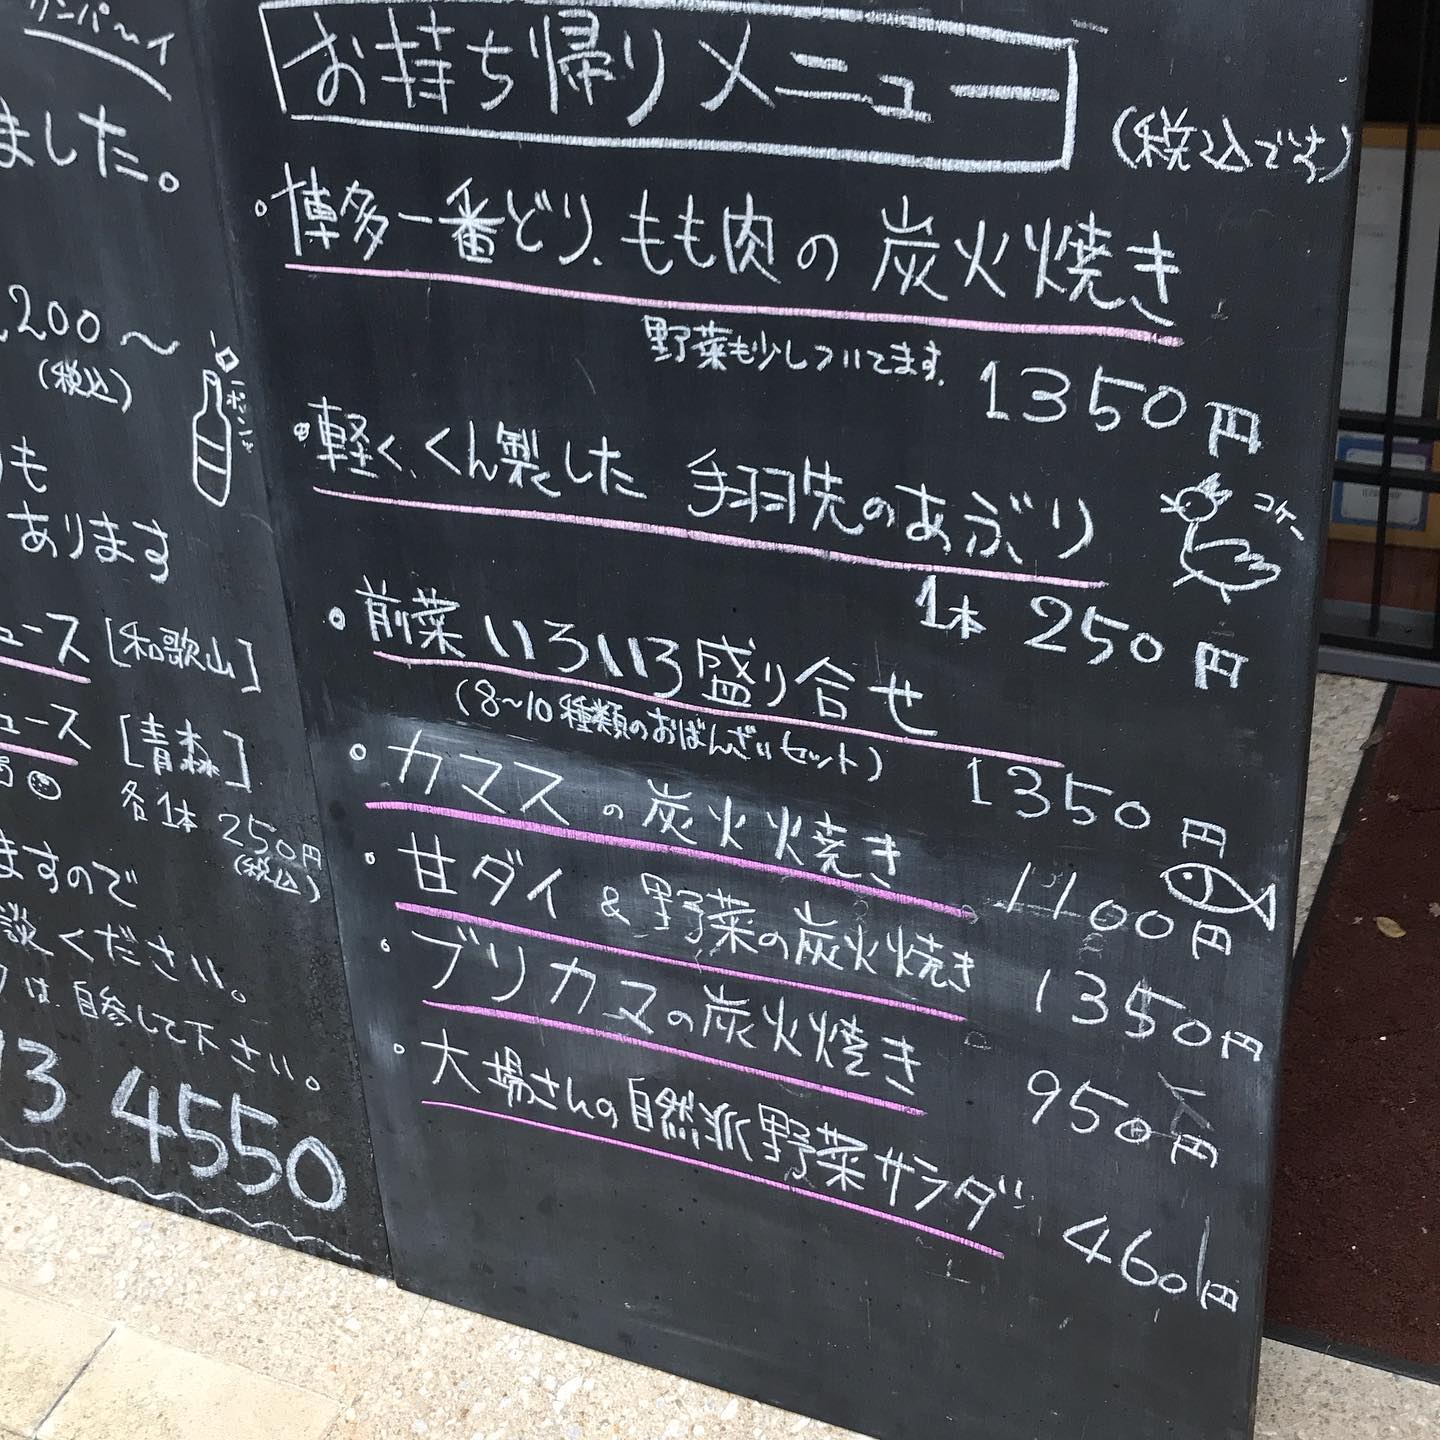 カンパーイ
ました。
,200〜
(税込)
ポンッ
も
あります
ュース [和歌山]
ュース [青森]
各1本 250円
(税込)
ますので
談ください。
は自参して下さい。
13 4550
お持ち帰りメニュー
(税込です)
博多一番どり、もも肉の炭火焼き
野菜も少しついてます。 1350円
軽く、くん製した 手羽先のあぶり
コケー
1本 250円
前菜いろいろ盛り合せ
(8〜10種類のおばんざいセット) 1350円
カマスの炭火焼き 1100円
甘ダイ&野菜の炭火焼き 1350円
ブリカマの炭火焼き 950円
大場さんの自然派野菜サラダ 460円